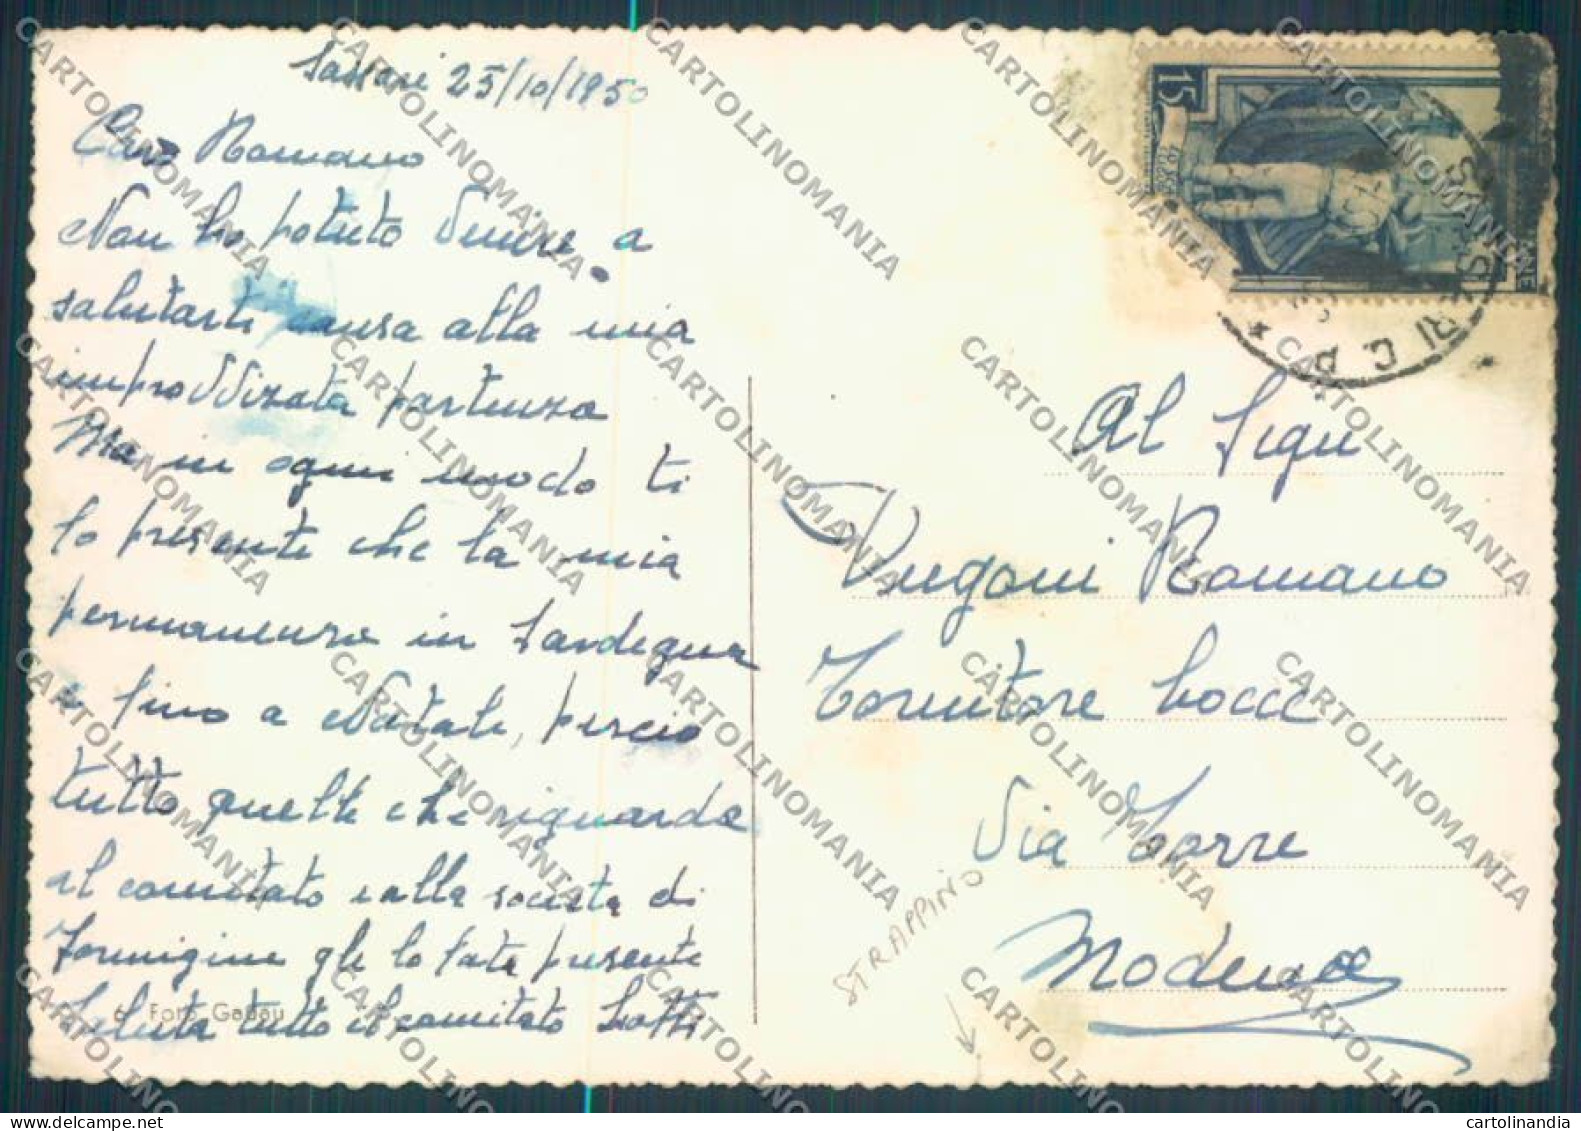 Sassari 25/10/1950
Caro Romano
Non ho potuto Venire a
salutarti causa alla mia
improvvizata partenza
Ma in ogni modo ti
fo presenti che la mia
permanenza in Sardegna
e fino a Natale, percio
tutto quelle che riguarda
al comitato e alla societa di
Formigine gli lo fate presente
Saluta tutto il comitato Lotti
6 Foto Gabau
15
Al Sign
Vugoni Romano
Tornitore
Via Torre
Modena
STRAPPINO
CARTOLINOMANIA
cartolinandia